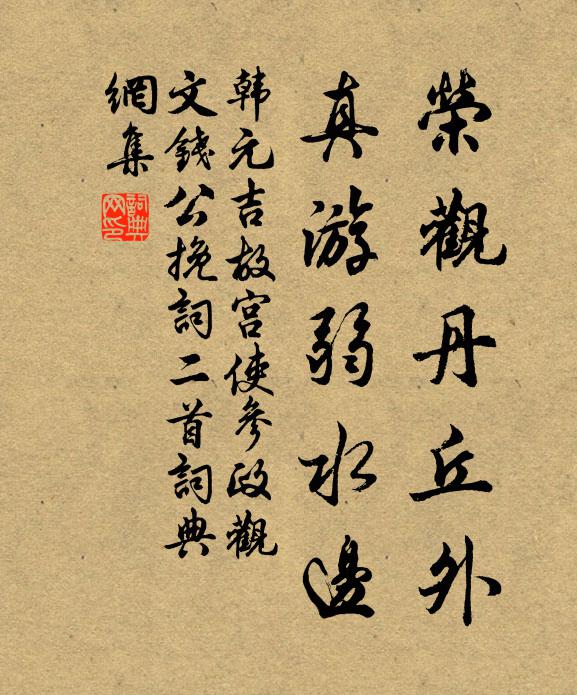 榮觀丹丘外
真游弱水邊
韩元吉故宫使參政觀
文錢公挽詞二首詞典
網集
詞典
网印